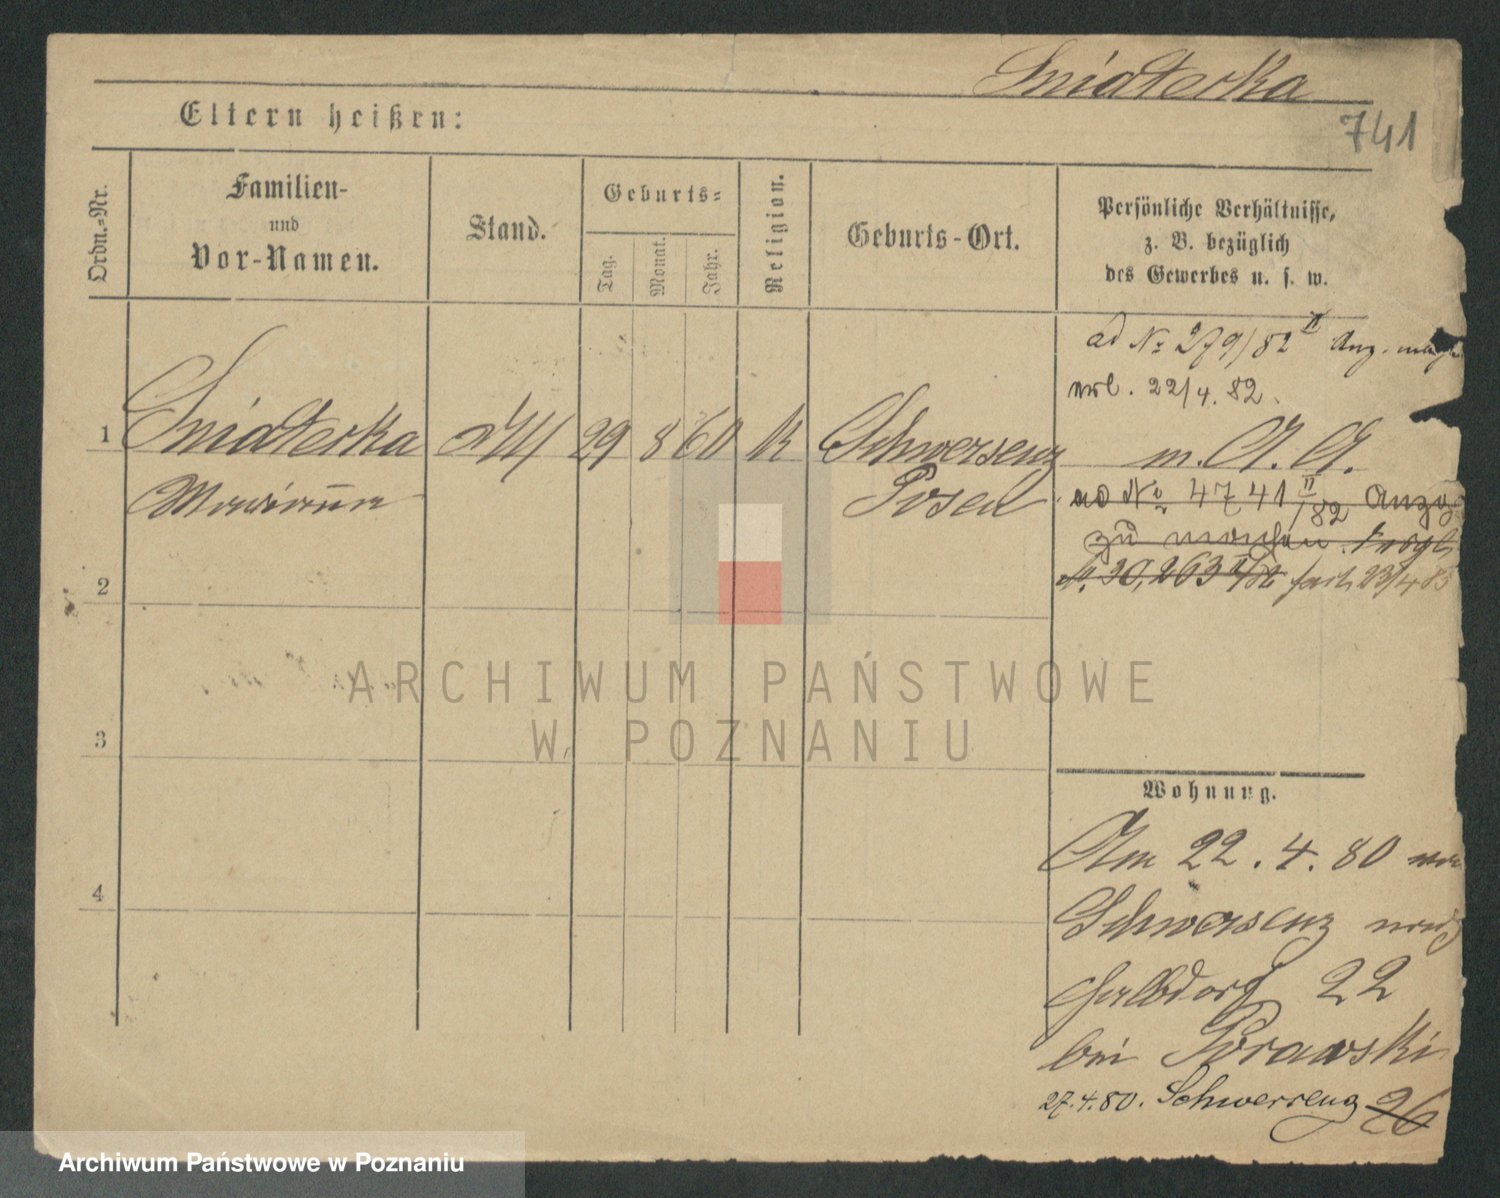 Sniaterka
741
Eltern heißen:
Ordn.-Nr.
Familien-
und
Vor-Namen.
Stand.
Geburts-
Tag.
Monat.
Jahr.
Religion.
Geburts-Ort.
Persönliche Verhältnisse,
z. B. bezüglich
des Gewerbes u. s. w.
ad No 279/82 II Anz.
22/4. 82.
1 Sniaterka 29 8 60 K Schwersenz
m. A. A.
Marianna Posen
ad No 4741 II/82 Anzg
zu machen.
20,263 II/82 23/4 83
2
3
4
ARCHIWUM PAŃSTWOWE
W POZNANIU
Wohnung.
Am 22. 4. 80 von
Schwersenz nach
Halbdorf 22
bei Górawski
27.4.80. Schwersenz 26
Archiwum Państwowe w Poznaniu